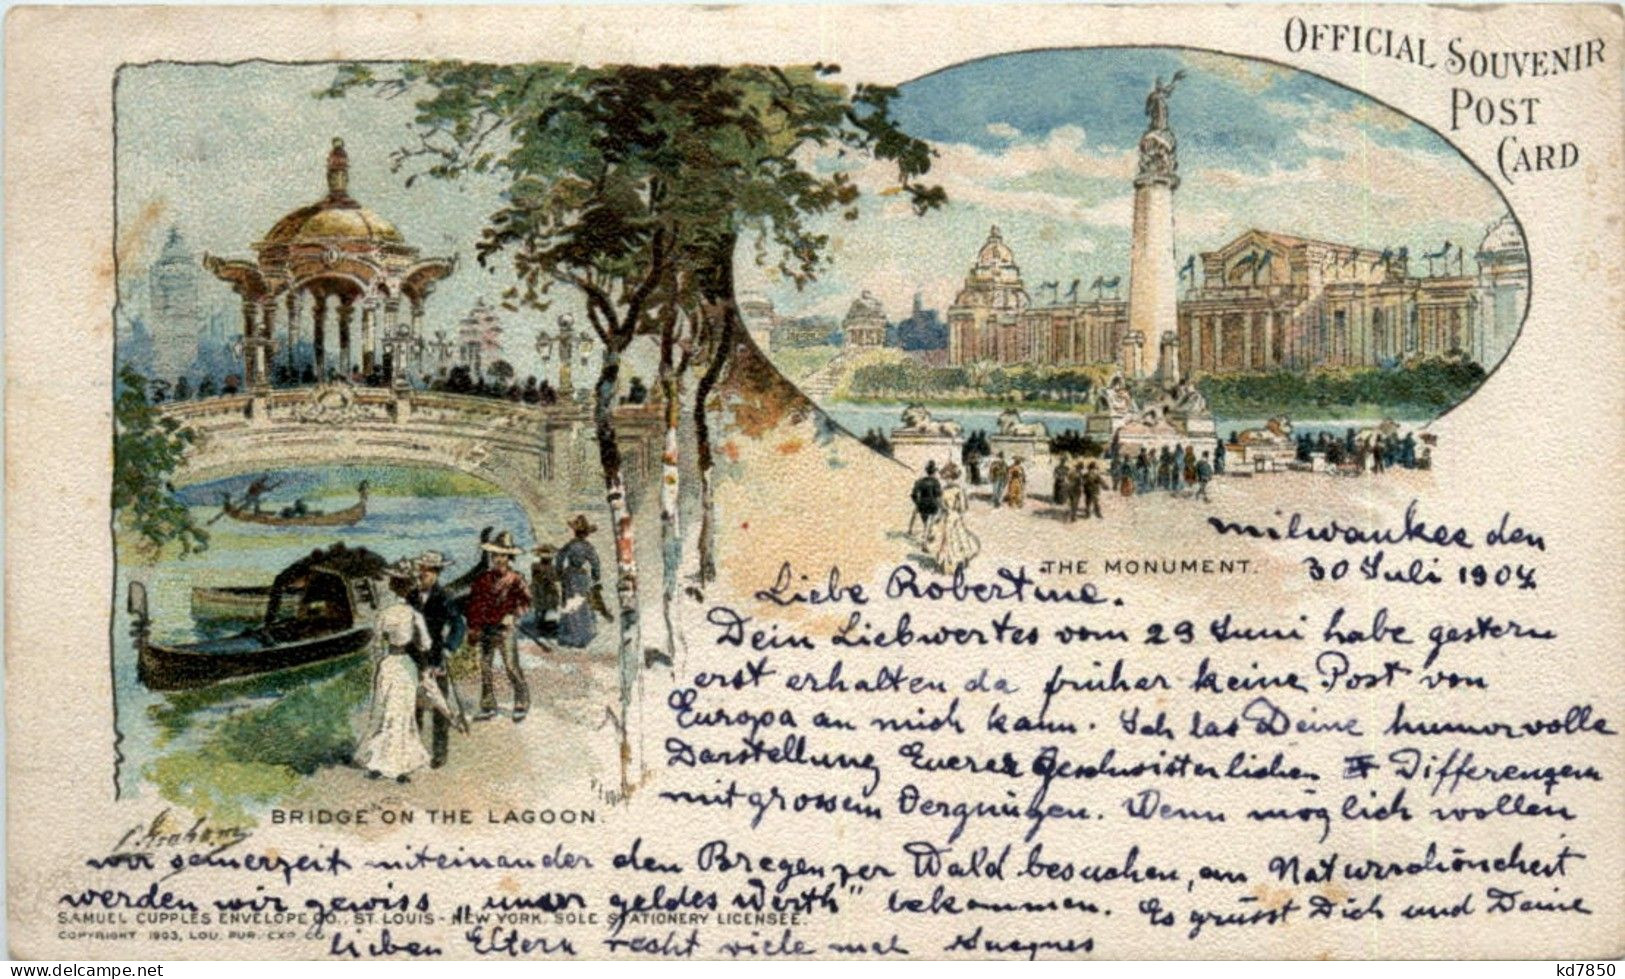 OFFICIAL SOUVENIR
POST
CARD
THE MONUMENT.
BRIDGE ON THE LAGOON.
milwaukee den
30 Juli 1904
Liebe Robertine.
Dein Liebwertes vom 29 Juni habe gestern
erst erhalten da früher keine Post von
Europa an mich kam. Ich las Deine humorvolle
Darstellung Euerer Geschwisterlichen Differenzen
mit grossem Vergnügen. Wenn möglich wollen
wir seinerzeit miteinander den Bregenzer Wald besuchen, an Naturschönheit
werden wir gewiss „unser geldes Werth" bekommen. Es grüsst Dich und Deine
lieben Eltern recht viele mal
SAMUEL CUPPLES ENVELOPE CO., ST. LOUIS - NEW YORK. SOLE STATIONERY LICENSEE.
COPYRIGHT 1903, LOU. PUR. EXP. CO
kd7850